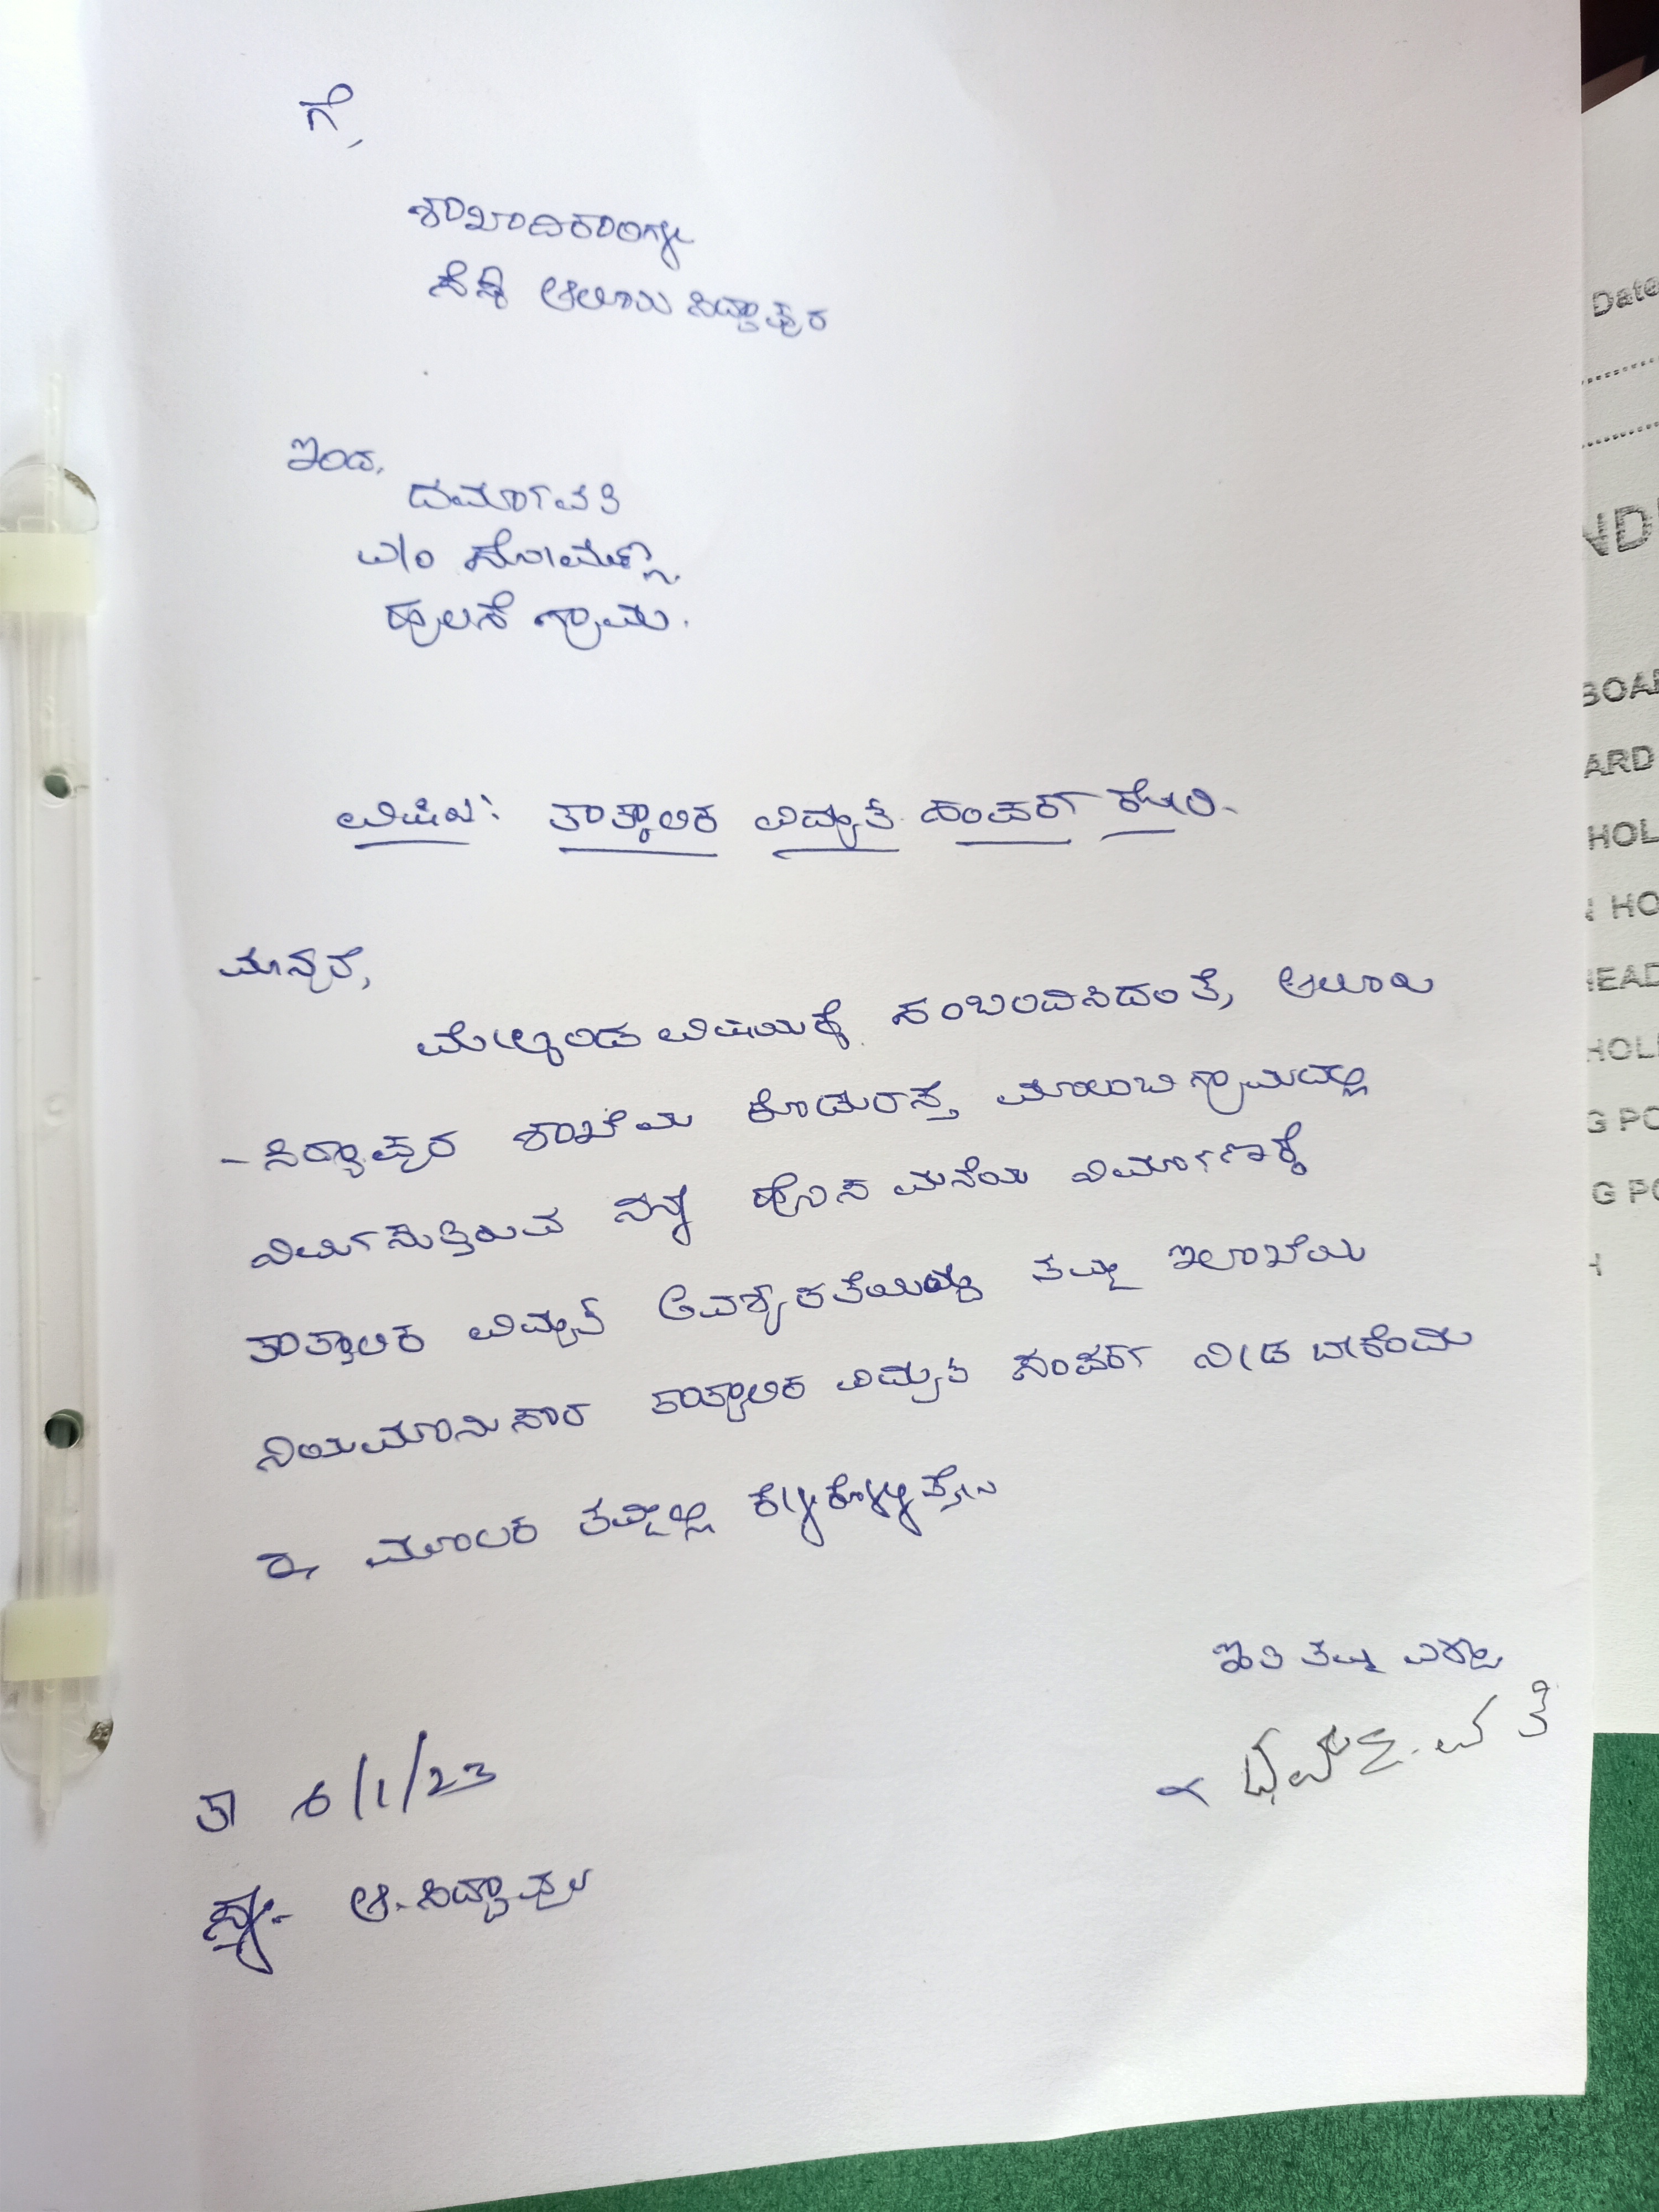 ಗೆ,
ಶಾಖಾದಿಕಾರಿಗಳು
ಸೆಸ್ಕ್ ಆಲೂರು ಸಿದ್ದಾಪುರ
ಇಂದ,
ದಮಾರ್ಗವತಿ
ಹುಲಸೆ ಗ್ರಾಮ.
ವಿಷಯ: ತಾತ್ಕಾಲಿಕ ವಿದ್ಯುತ್ ಸಂಪರ್ಕ ಕೋರಿ.
ಮಾನ್ಯರೆ,
ಮೇಲ್ಕಂಡ ವಿಷಯಕ್ಕೆ ಸಂಬಂಧಿಸಿದಂತೆ, ಆಲೂರು
-ಸಿದ್ದಾಪುರ ಶಾಖೆಯ ಕೊಡುರಸ್ತೆ ಗ್ರಾಮದಲ್ಲಿ
ನಿರ್ಮಿಸುತ್ತಿರುವ ನನ್ನ ಹೊಸ ಮನೆಯ ನಿರ್ಮಾಣಕ್ಕೆ
ತಾತ್ಕಾಲಿಕ ವಿದ್ಯುತ್ ಅವಶ್ಯಕತೆಯಿದ್ದು ತಮ್ಮ ಇಲಾಖೆಯ
ನಿಯಮಾನುಸಾರ ತಾತ್ಕಾಲಿಕ ವಿದ್ಯುತ್ ಸಂಪರ್ಕ ನೀಡಬೇಕೆಂದು
ಈ ಮೂಲಕ ತಮ್ಮಲ್ಲಿ ಕೇಳಿಕೊಳ್ಳುತ್ತೇನೆ
ಇತಿ ತಮ್ಮ ವಿಶ್ವಾಸಿ
ತಾ 6/1/23
ಸ್ಥಳ:- ಆ.ಸಿದ್ದಾಪುರ
Date
ND
BOAR
ARD
HOL
HO
HEAD
HOL
G PO
G PO
H